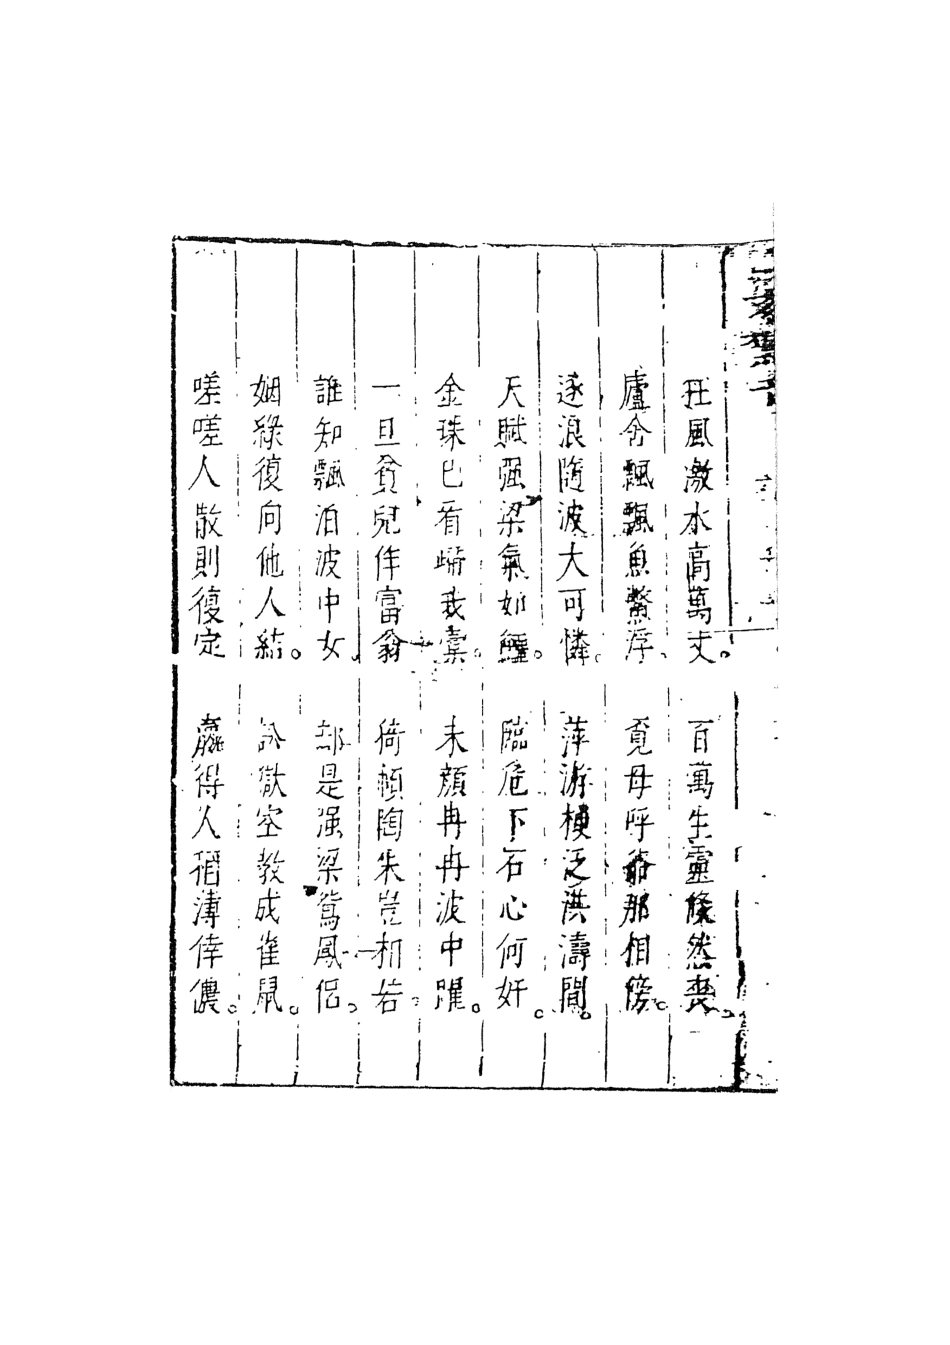 狂風激水高萬丈。百萬生靈倐然喪。
廬舍飄飄魚鱉浮。覓母呼爺那相傍。
逐浪隨波大可憐。萍游梗泛洪濤間。
天賦强梁氣如鱣。臨危下石心何奸。
金珠已看歸我橐。朱顏冉冉波中躍。
一旦貧兒作富翁。猗頓陶朱豈相若
誰知飄泊波中女。卻是强梁鴛鳳侶。
姻緣復向他人結。訟獄空教成雀鼠。
嗟嗟人散則復定 贏得人稱薄倖儂。